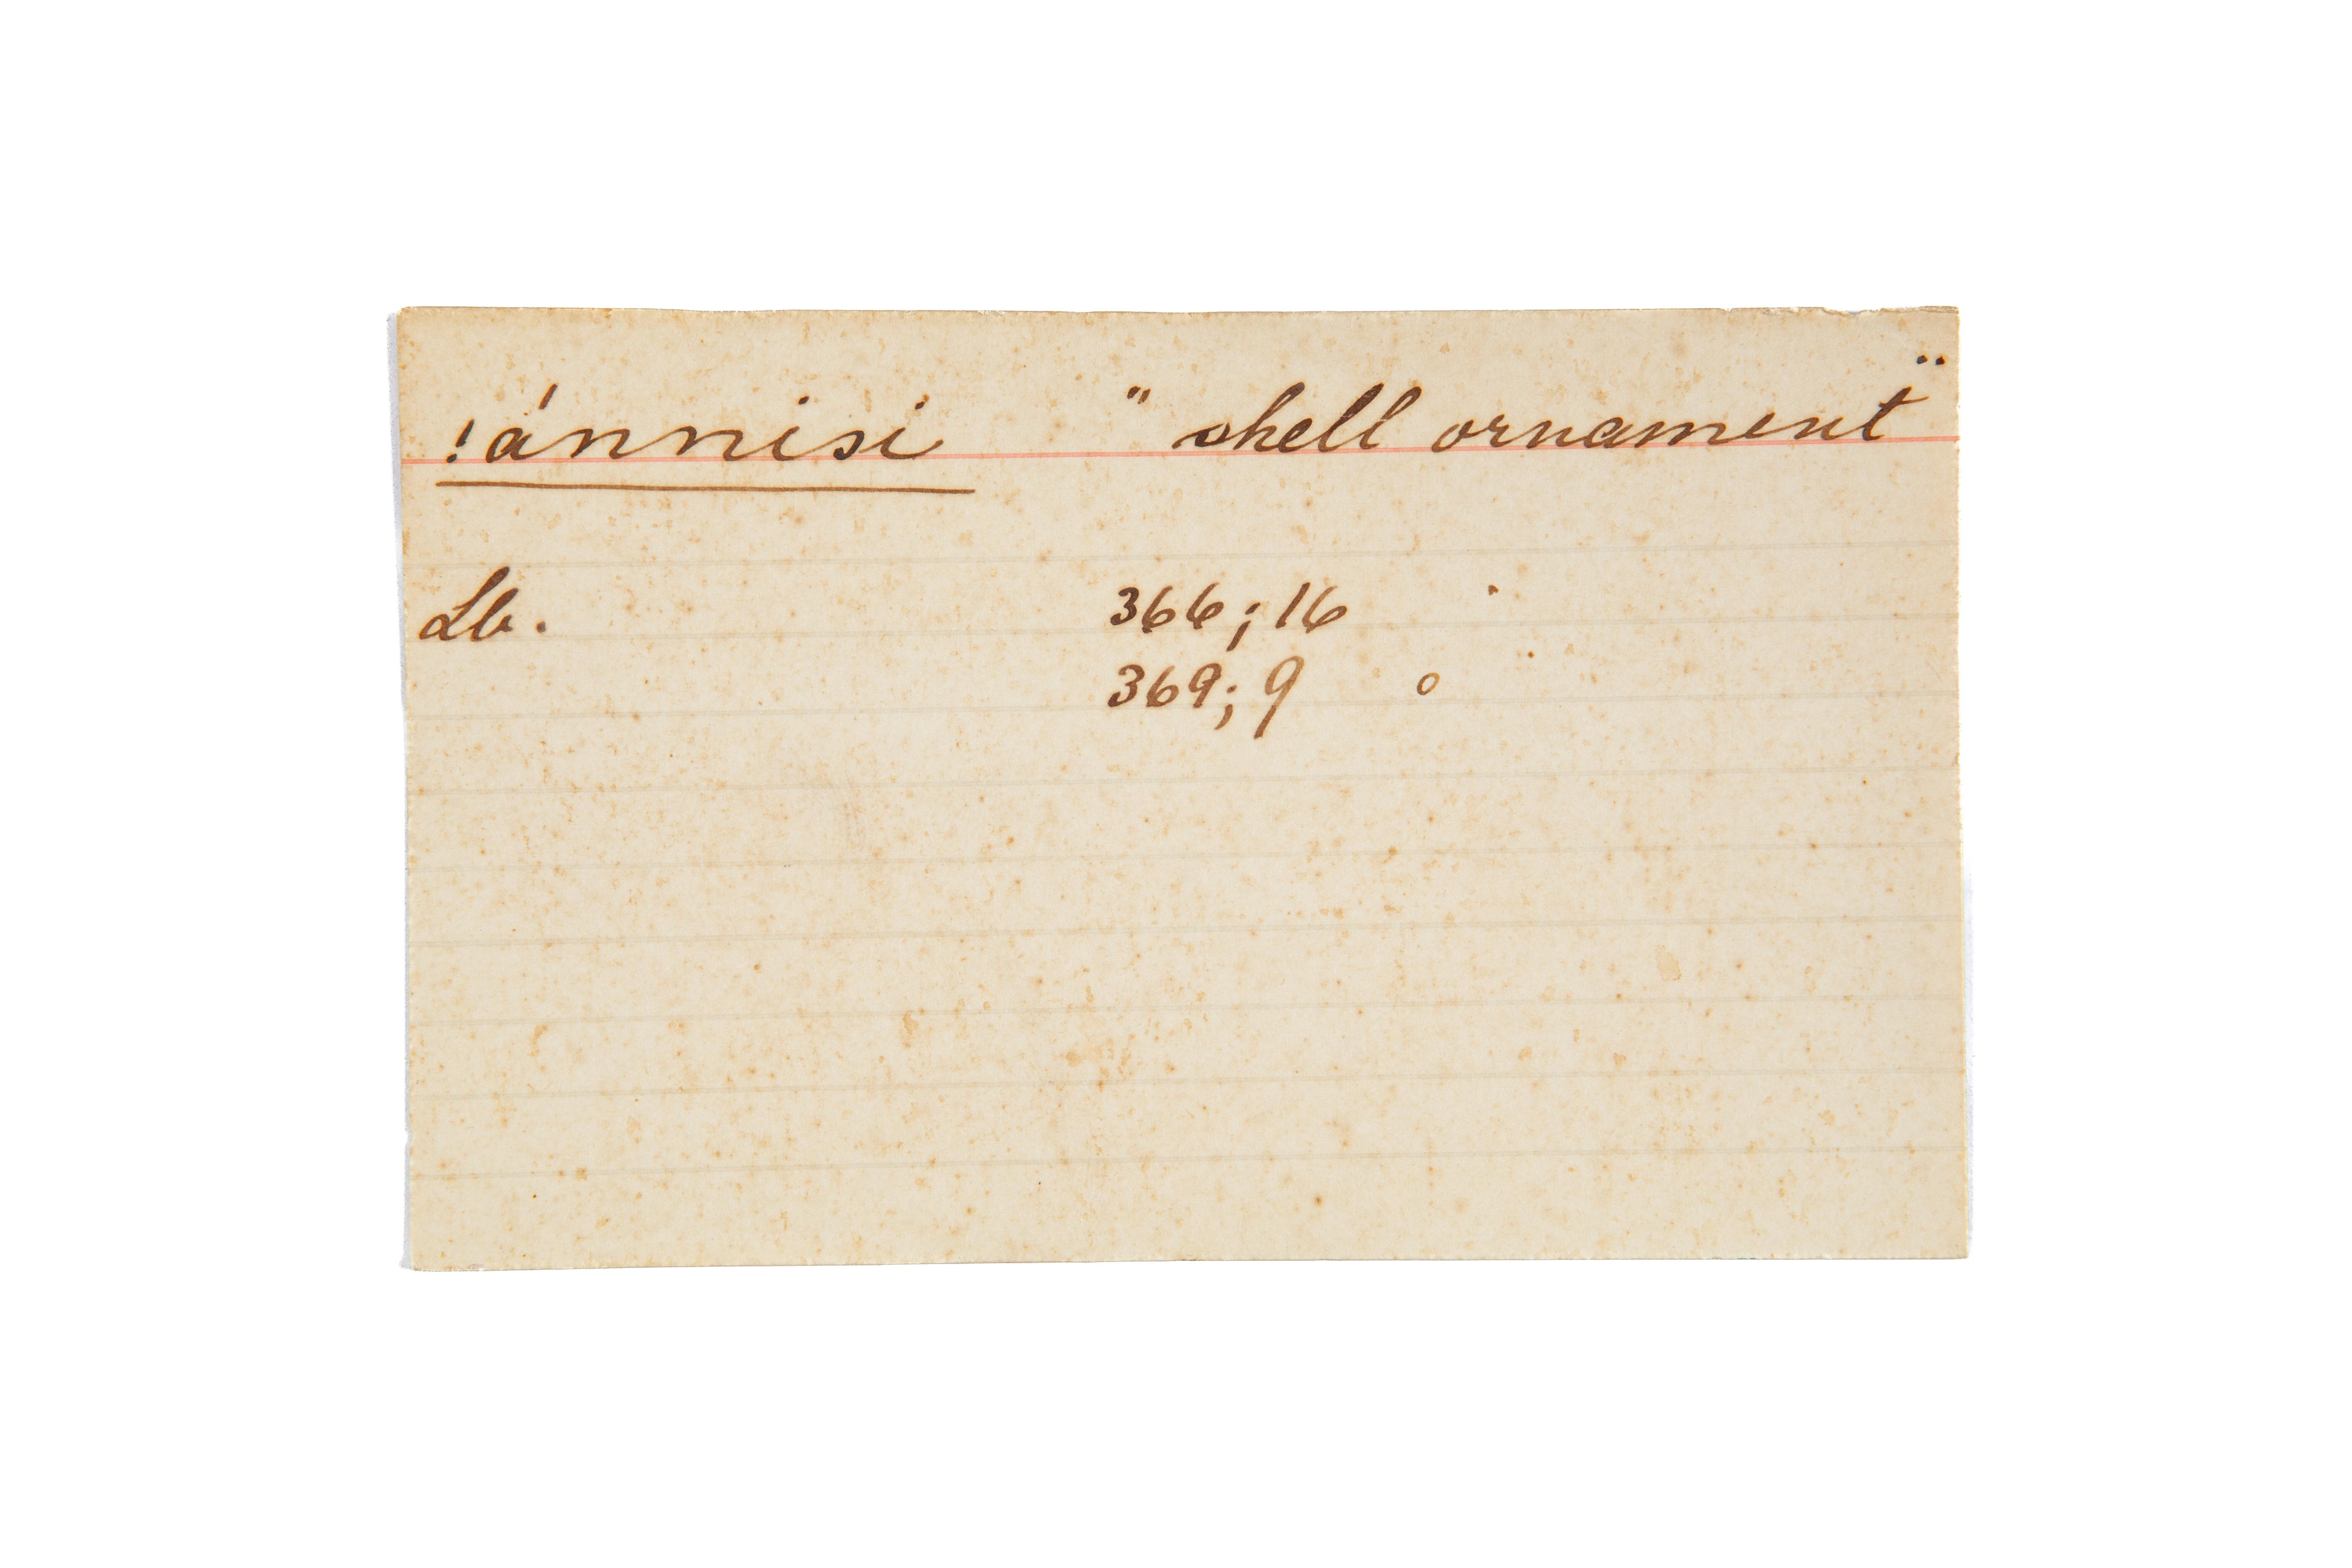 !ánnisi " shell ornament"
Lb. 366; 16
369; 9 o